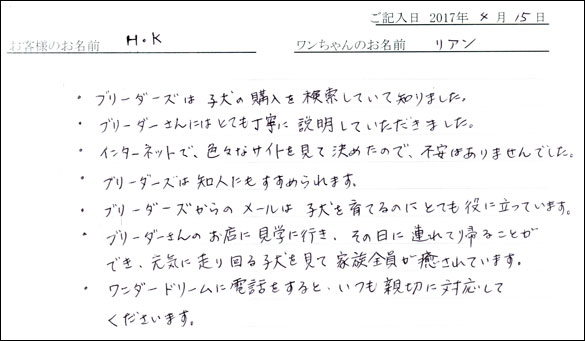 ご記入日 2017年 4月 15日
お客様のお名前 H.K ワンちゃんのお名前 リアン
・ブリーダーズは子犬の購入を検索していて知りました。
・ブリーダーさんにはとても丁寧に説明していただきました。
・インターネットで、色々なサイトを見て決めたので、不安はありませんでした。
・ブリーダーズは知人にもすすめられます。
・ブリーダーズからのメールは子犬を育てるのにとても役に立っています。
・ブリーダーさんのお店に見学に行き、その日に連れて帰ることが
でき、元気に走り回る子犬を見て家族全員が癒されています。
・ワンダードリームに電話をすると、いつも親切に対応して
くださいます。